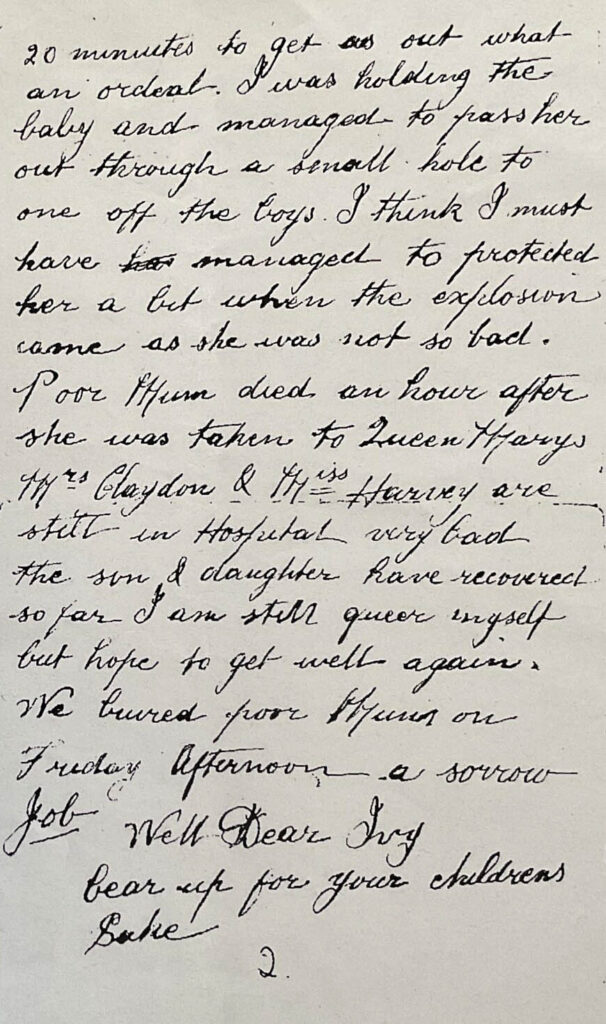 20 miniutes to get as out what
an ordeal. I was holding the
baby and managed to pass her
out through a small hole to
one off the boys. I think I must
have has managed to protected
her a bit when the explosion
came as she was not so bad.
Poor Mum died an hour after
she was taken to Queen Marys
Mrs Claydon & Miss Harvey are
still in Hospital very bad
the son & daughter have recovered
so far I am still queer myself
but hope to get well again.
We buired poor Mum on
Friday Afternoon a sorrow
Job
Well Dear Ivy
bear up for your childrens
Sake
2.